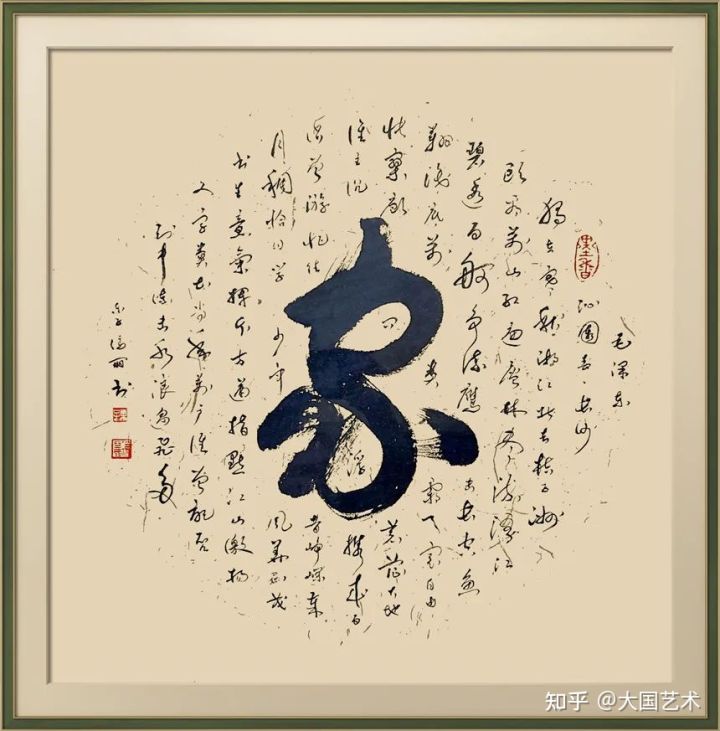 毛泽东
沁园春·长沙
独立寒秋湘江北去橘子洲
头看万山红遍层林尽染漫江
碧透百舸争流鹰击长空鱼
翔浅底万类霜天竞自由
怅寥廓问苍茫大地
谁主沉浮携来百
侣曾游忆往昔峥嵘岁
月稠恰同学少年风华正茂
书生意气挥斥方遒指点江山激扬
文字粪土当年万户侯曾记否
到中流击水浪遏飞舟
家
知乎 @大国艺术